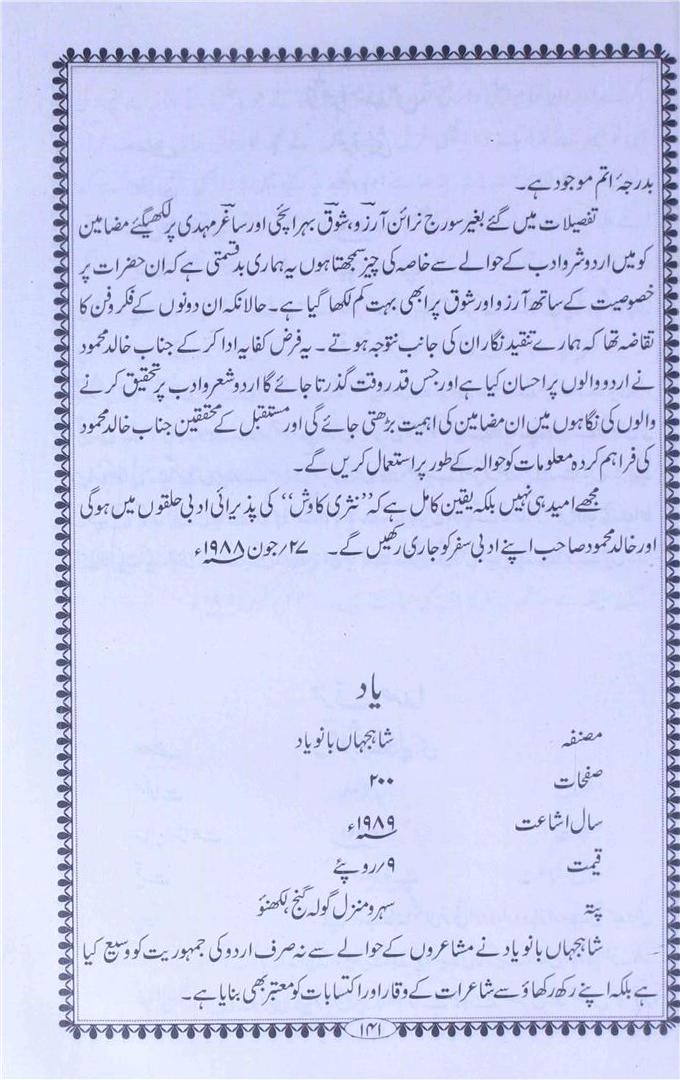 بدرجۂ اتم موجود ہے۔
تفصیلات میں گئے بغیر سورج نرائن آرزو، شوق بہرائچی اور ساغر مہدی پر لکھے گئے مضامین
کو میں اردو شعر و ادب کے حوالے سے خاصہ کی چیز سمجھتا ہوں یہ ہماری بدقسمتی ہے کہ ان حضرات پر
خصوصیت کے ساتھ آرزو اور شوق پر ابھی بہت کم لکھا گیا ہے۔ حالانکہ ان دونوں کے فکر و فن کا
تقاضہ تھا کہ ہمارے تنقید نگار ان کی جانب متوجہ ہوتے۔ یہ فرض کفایہ ادا کر کے جناب خالد محمود
نے اردو والوں پر احسان کیا ہے اور جس قدر وقت گذرتا جائے گا اردو شعر و ادب پر تحقیق کرنے
والوں کی نگاہوں میں ان مضامین کی اہمیت بڑھتی جائے گی اور مستقبل کے محققین جناب خالد محمود
کی فراہم کردہ معلومات کو حوالہ کے طور پر استعمال کریں گے۔
مجھے امید ہی نہیں بلکہ یقین کامل ہے کہ ”نثری کاوش“ کی پذیرائی ادبی حلقوں میں ہوگی
اور خالد محمود صاحب اپنے ادبی سفر کو جاری رکھیں گے۔ ۲۷؍جون ۱۹۸۸ء
یاد
مصنفہ شاہجہاں بانو یاد
صفحات ۲۰۰
سال اشاعت ۱۹۸۹ء
قیمت ۹؍روپئے
پتہ سہرو منزل گولہ گنج لکھنؤ
شاہجہاں بانو یاد نے مشاعروں کے حوالے سے نہ صرف اردو کی جمہوریت کو وسیع کیا
ہے بلکہ اپنے رکھ رکھاؤ سے شاعرات کے وقار اور اکتسابات کو معتبر بھی بنایا ہے۔
۱۴۱